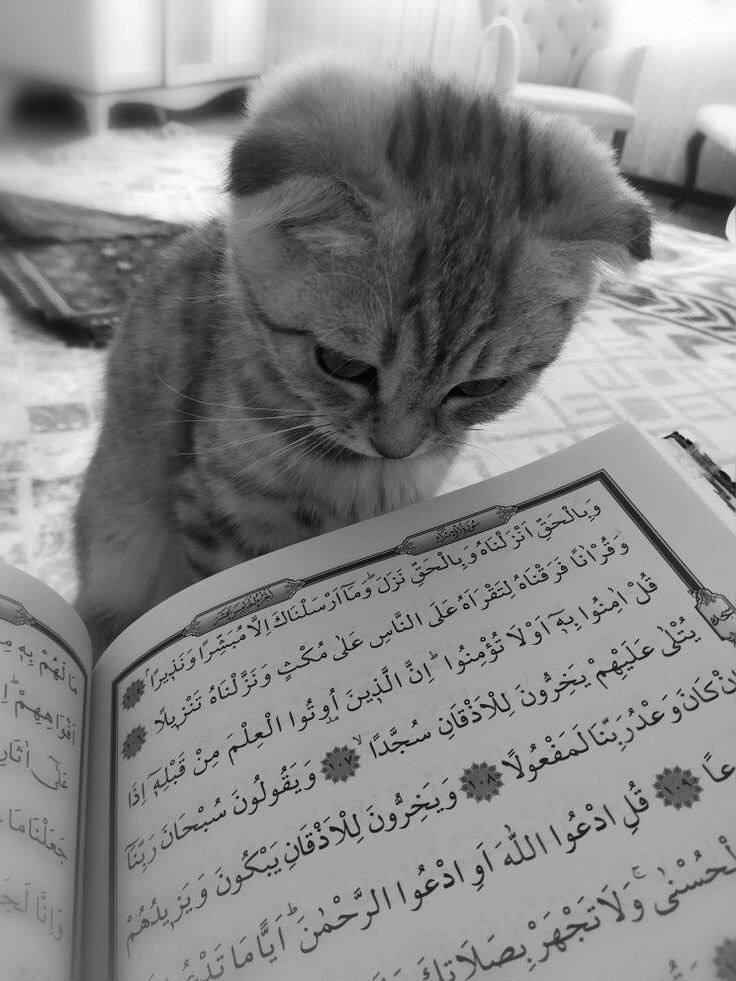 سُورَةُ الْاِسْرَاءِ
اَلْجُزْءُ الْخَامِسَ عَشَرَ
وَبِالْحَقِّ اَنْزَلْنَاهُ وَبِالْحَقِّ نَزَلَۜ وَمَٓا اَرْسَلْنَاكَ اِلَّا مُبَشِّرًا وَنَذ۪يرًاۢ ١٠٥
وَقُرْاٰنًا فَرَقْنَاهُ لِتَقْرَاَهُ عَلَى النَّاسِ عَلٰى مُكْثٍ وَنَزَّلْنَاهُ تَنْز۪يلًا ١٠٦
قُلْ اٰمِنُوا بِه۪ٓ اَوْ لَا تُؤْمِنُواۜ اِنَّ الَّذ۪ينَ اُو۫تُوا الْعِلْمَ مِنْ قَبْلِه۪ٓ اِذَا
يُتْلٰى عَلَيْهِمْ يَخِرُّونَ لِلْاَذْقَانِ سُجَّدًاۙ ١٠٧ وَيَقُولُونَ سُبْحَانَ رَبِّنَٓا
اِنْ كَانَ وَعْدُ رَبِّنَا لَمَفْعُولًا ١٠٨ وَيَخِرُّونَ لِلْاَذْقَانِ يَبْكُونَ وَيَز۪يدُهُمْ
عًا ١٠٩ قُلِ ادْعُوا اللّٰهَ اَوِ ادْعُوا الرَّحْمٰنَۜ اَيًّا مَا تَدْعُوا
الْحُسْنٰىۚ وَلَا تَجْهَرْ بِصَلَاتِكَ
مَالَهُمْ بِه۪
اَفْوَاهِهِمْ
عَلٰٓى اٰثَارِ
جَعَلْنَا مَا
وَاِنَّا